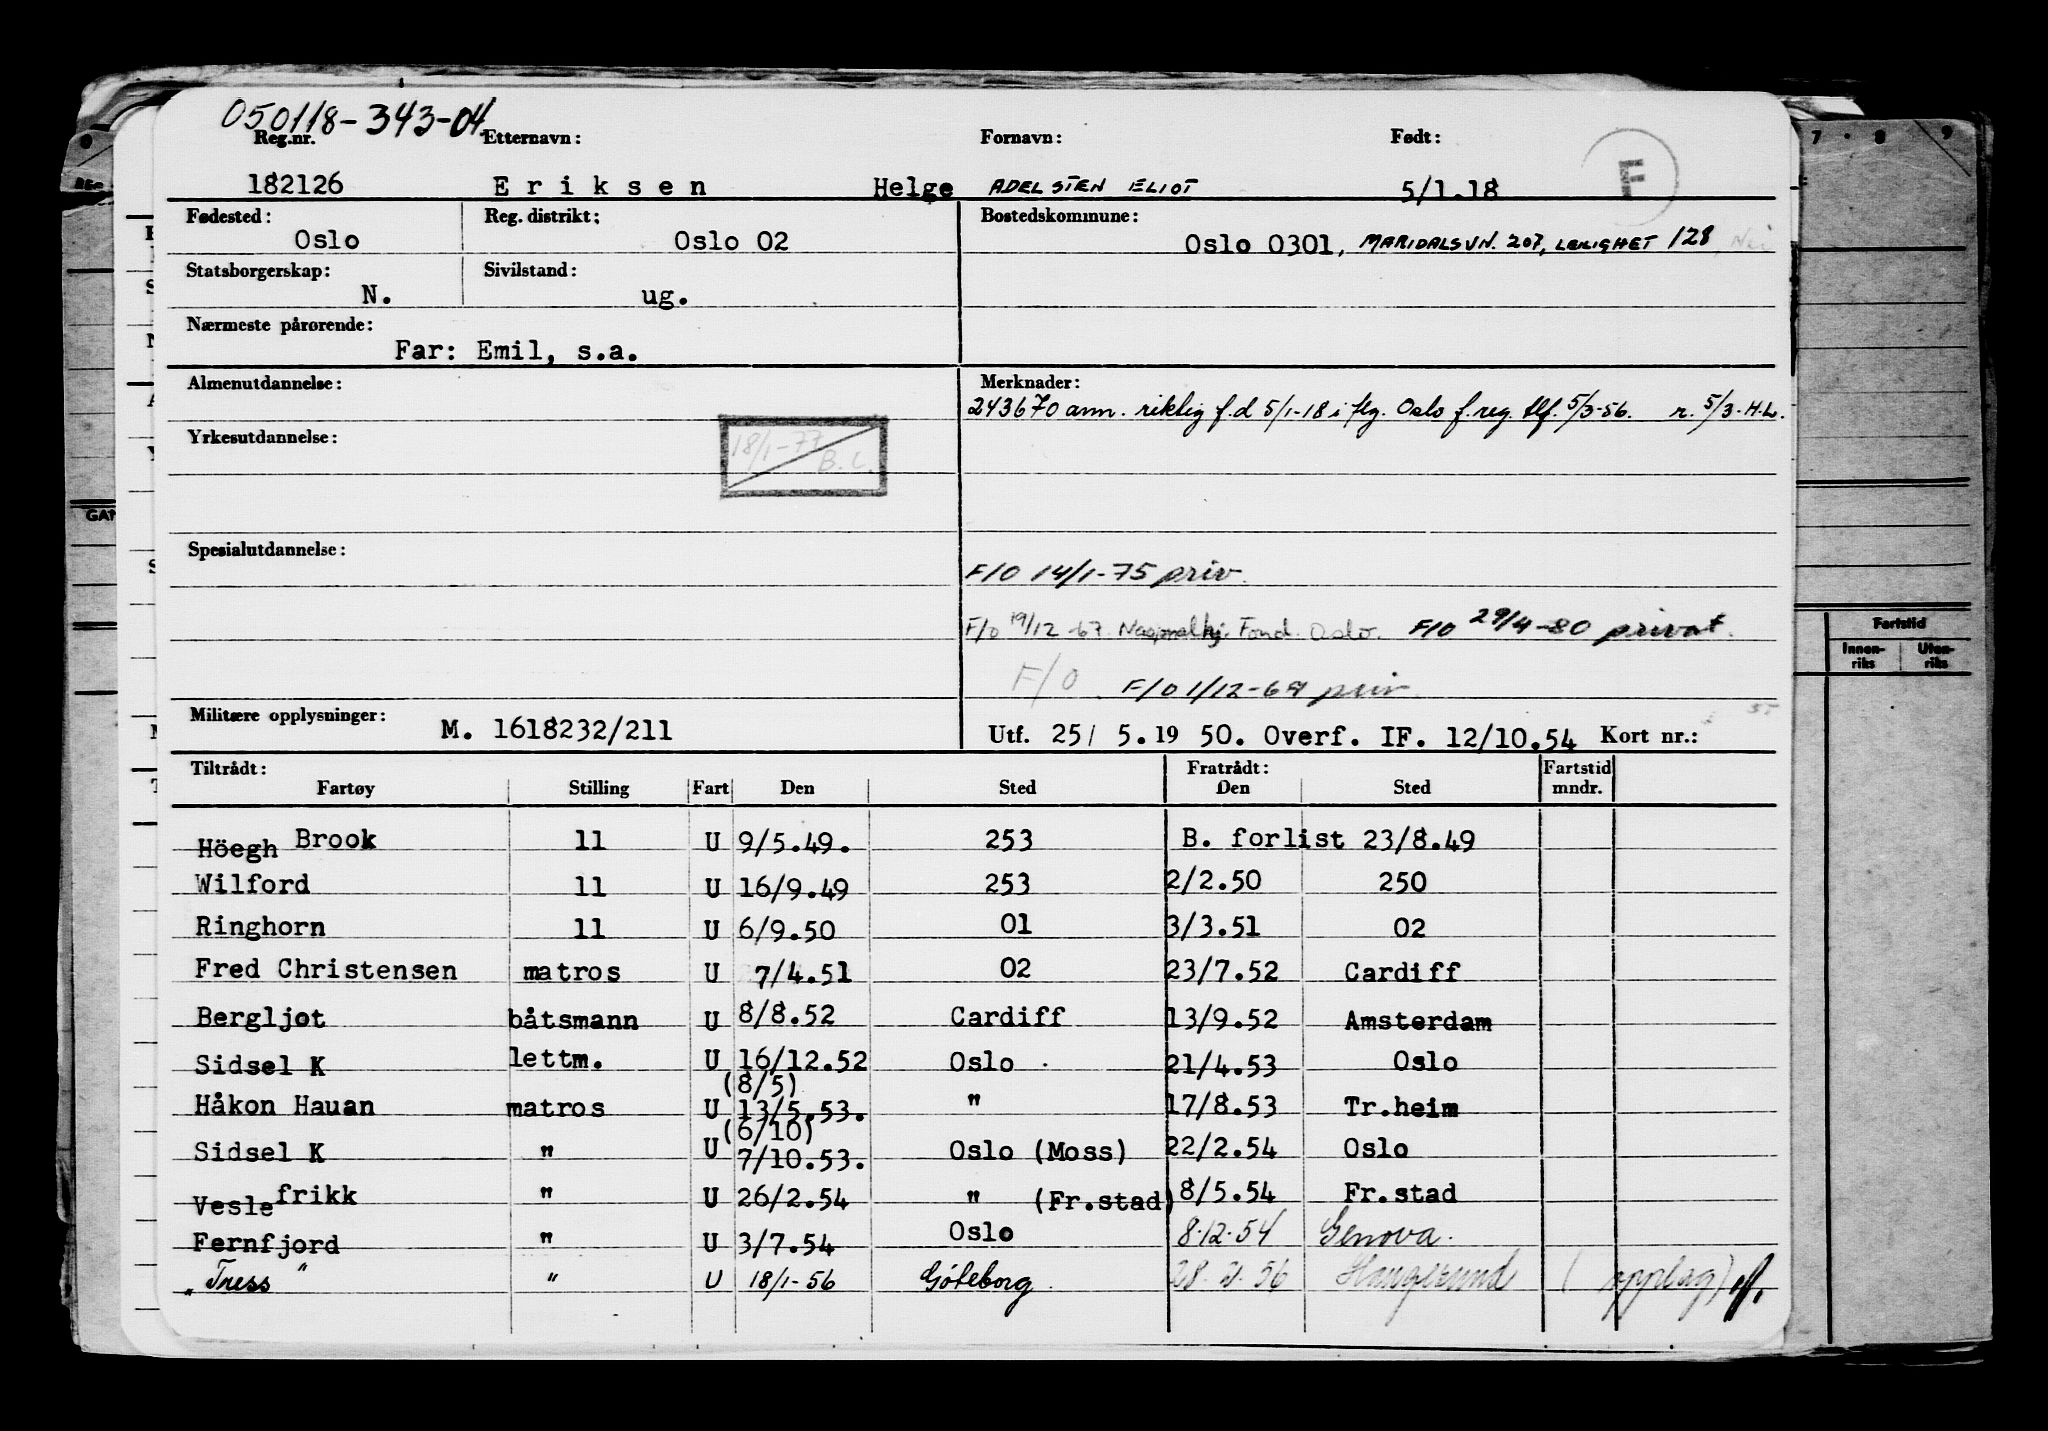 050118-343-04
Reg.nr. Etternavn: Fornavn: Født:
182126 Eriksen Helge ADELSTEN ELIOT 5/1.18 F
Fødested: Reg. distrikt: Bostedskommune:
Oslo Oslo 02 Oslo 0301, MARIDALSVN. 207, LEILIGHET 128
Statsborgerskap: Sivilstand:
N. ug.
Nærmeste pårørende:
Far: Emil, s.a.
Almenutdannelse: Merknader:
243670 ann. riktig f.d 5/1-18 i flg. Oslo f.reg. tlf. 5/3-56. r. 5/3-H.L.
Yrkesutdannelse:
18/1-77 B.L.
Spesialutdannelse:
F/O 14/1-75 priv.
F/O 19/12-67. Nasjonalhj. Fond. Oslo. F/O 29/4-80 privat.
F/O F/O 1/12-69 priv.
Militære opplysninger: M. 1618232/211 Utf. 25/ 5.19 50. Overf. IF. 12/10.54 Kort nr.:
Tiltrådt: Fratrådt: Fartstid
Fartøy Stilling Fart Den Sted Den Sted mndr.
Höegh Brook 11 U 9/5.49. 253 B. forlist 23/8.49
Wilford 11 U 16/9.49 253 2/2.50 250
Ringhorn 11 U 6/9.50 01 3/3.51 02
Fred Christensen matros U 7/4.51 02 23/7.52 Cardiff
Bergljot båtsmann U 8/8.52 Cardiff 13/9.52 Amsterdam
Sidsel K lettm. U 16/12.52 Oslo 21/4.53 Oslo
(8/5)
Håkon Hauan matros U 13/5.53. " 17/8.53 Tr.heim
(6/10)
Sidsel K " U 7/10.53. Oslo (Moss) 22/2.54 Oslo
Veslefrikk " U 26/2.54 " (Fr.stad) 8/5.54 Fr.stad
Fernfjord " U 3/7.54 Oslo 8.12.54 Genova.
"Tress" " U 18/1-56 Göteborg. 28. 2. 56 Haugesund (opplag)
7 8 9
Fartstid
Innenriks Utenriks